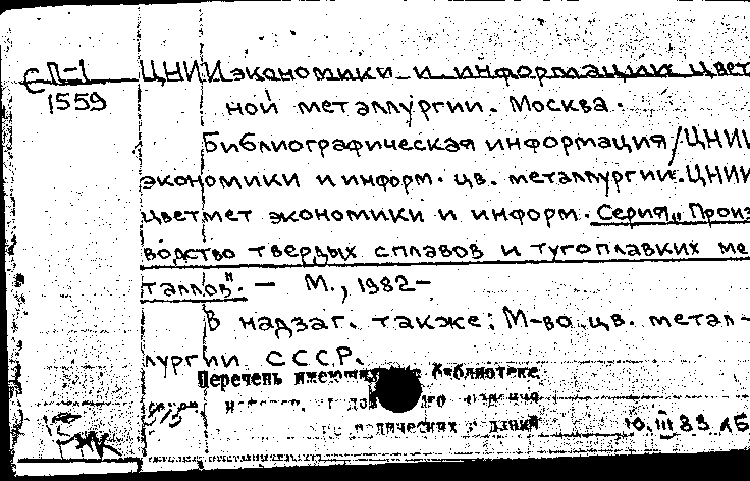 СП-1 ЦНИИ экономики и информации цвет
1559 ной металлургии. Москва.
Библиографическая информация / ЦНИИ
экономики и информ. цв. металлургии. ЦНИИ
цветмет экономики и информ. Серия „Произ
водство твердых сплавов и тугоплавких ме
таллов". — М., 1982—
В надзаг. также: М-во цв. метал-
лургии СССР.
Перечень библиотеке
10.III 83
ЖК